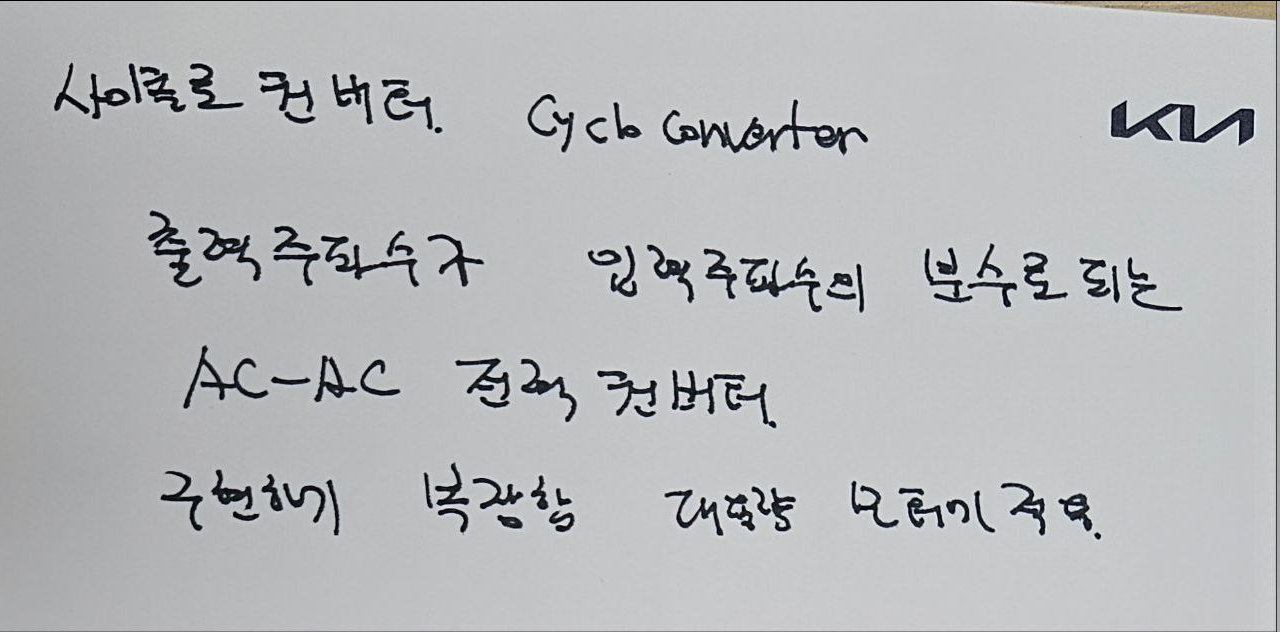 사이클로 컨버터. Cyclo Converter
KIA
출력주파수가 입력주파수의 분수로 되는
AC-AC 전력 컨버터.
구현하기 복잡함 대용량 모터에 적용.